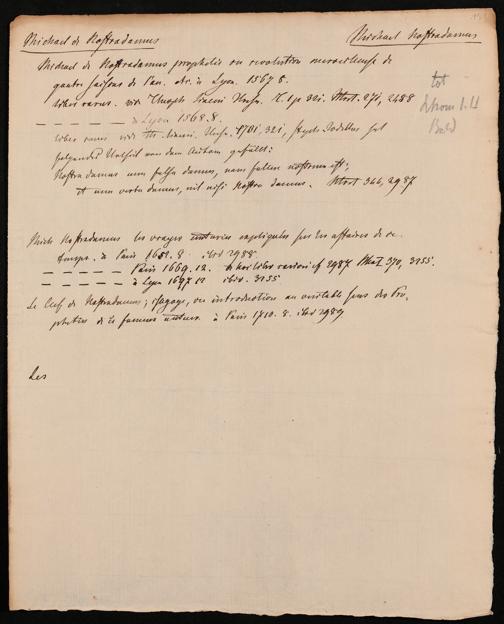 Michael de Nostradamus
Michael Nostradamus
Michael de Nostradamus prophetie ou revolution merveilleuse de
quatre saisons de l'an. etc. à Lyon. 1567. 8.
liber rarus. vid. 2488
à Lyon 1568. 8.
liber rarus vid. 1701. 321,
folgendes Urtheil von dem Autore gefället:
Nostra damus cum falsa damus, nam fallere nostrum est;
et cum verba damus, nil nisi Nostra damus. 366, 2987
Mich. Nostradamus les vrayes centuries expliquées sur les affaires de ce
temps. à Paris 1652. 8. ibid 2988
Paris 1669. 12. liber rarior cf 2987. 370, 3155.
à Lyon 1697 12 ibid. 3155
La Clef de Nostradamus; isagoge, ou introduction au veritable sens des Pro-
pheties de ce fameux auteur. à Paris 1710. 8. ibid 2989
Les